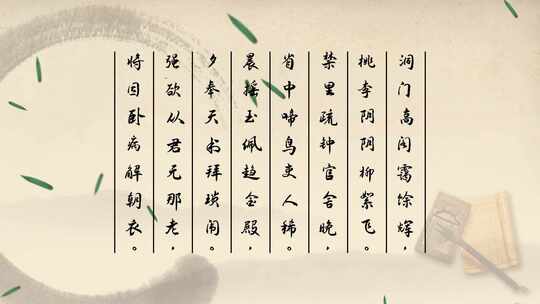 洞门高阁霭馀辉，
桃李阴阴柳絮飞。
禁里疏钟官舍晚，
省中啼鸟吏人稀。
晨摇玉佩趋金殿，
夕奉天书拜琐闱。
强欲从君无那老，
将因卧病解朝衣。